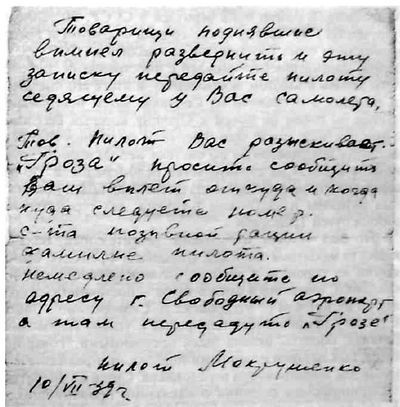 Товарищи поднявшие
вимпел разверните и эту
записку передайте пилоту
седящему у Вас самолета.
Тов. Пилот Вас разыскивает
"Гроза" просит сообщить
Ваш вылет откуда и когда
куда следуете номер.
с-та позывной рации
фамилие пилота.
немедлено сообщите по
адресу г. Свободный аэропорт
а там передадут "Грозе"
пилот Мокрушенко
10/VII 39 г.